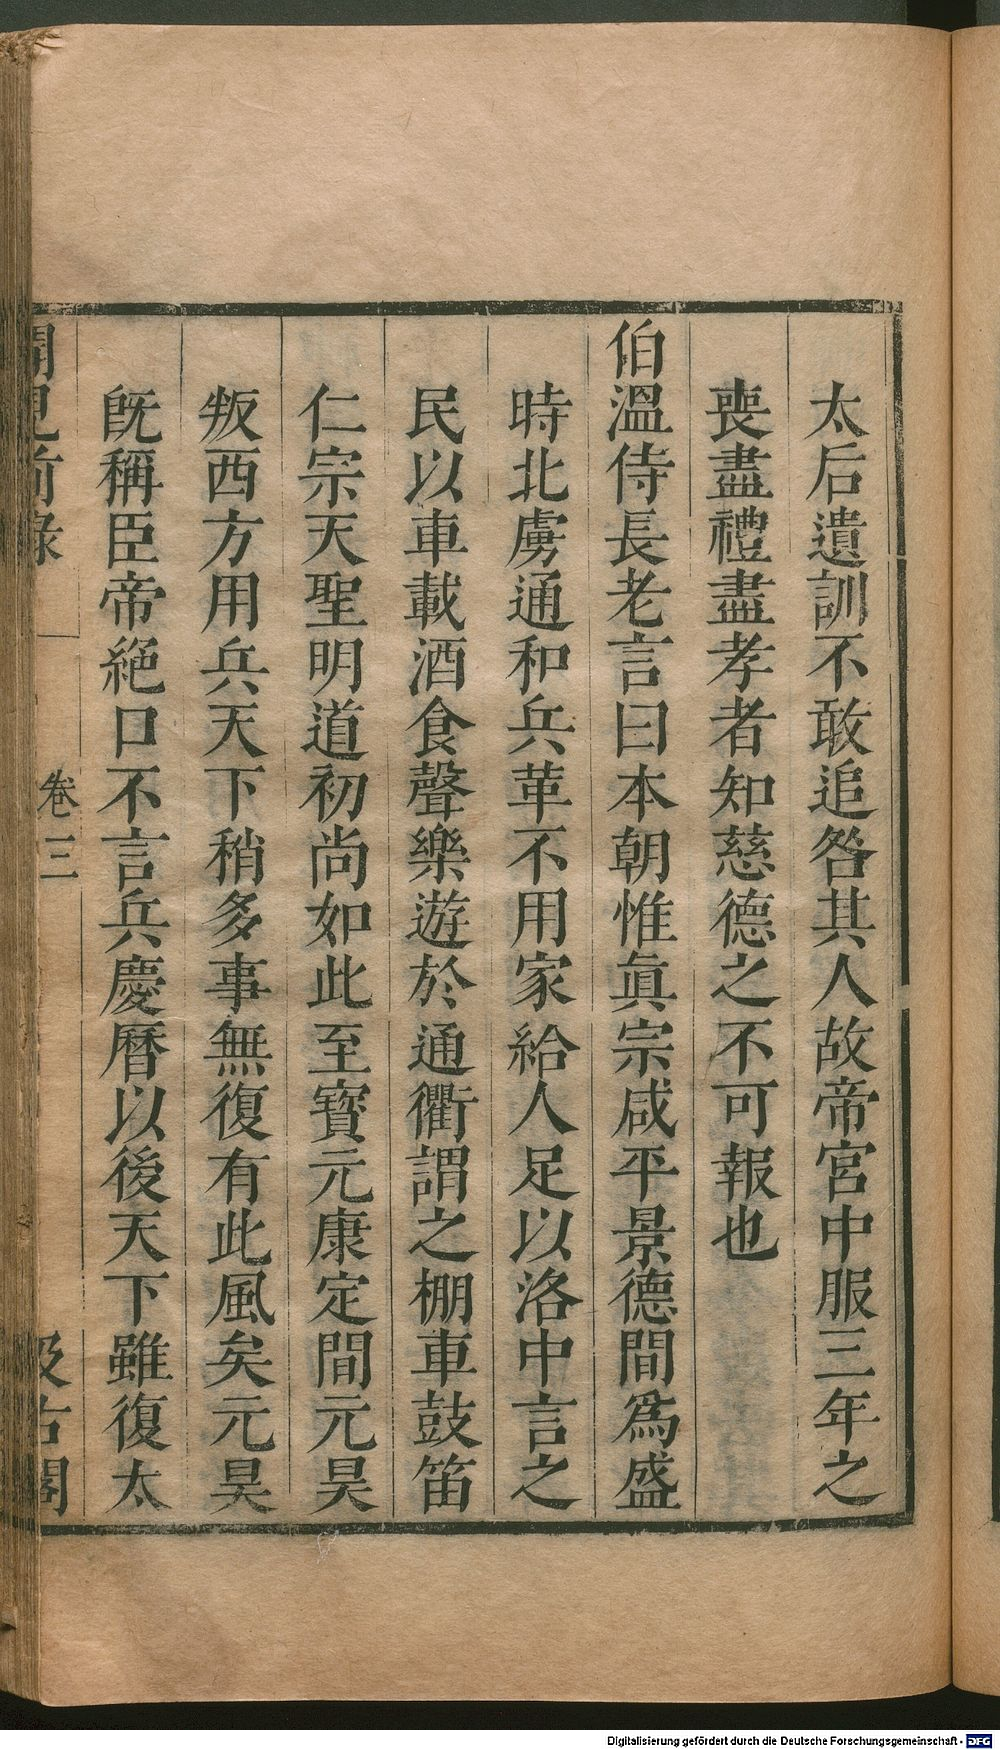 太后遺訓不敢追咎其人故帝宮中服三年之
喪盡禮盡孝者知慈德之不可報也
伯溫侍長老言曰本朝惟眞宗咸平景德間爲盛
時北虜通和兵革不用家給人足以洛中言之
民以車載酒食聲樂遊於通衢謂之棚車鼓笛
仁宗天聖明道初尚如此至寳元康定間元昊
叛西方用兵天下稍多事無復有此風矣元昊
旣稱臣帝絕口不言兵慶曆以後天下雖復太
聞見前錄
卷三
汲古閣
Digitalisierung gefördert durch die Deutsche Forschungsgemeinschaft - DFG